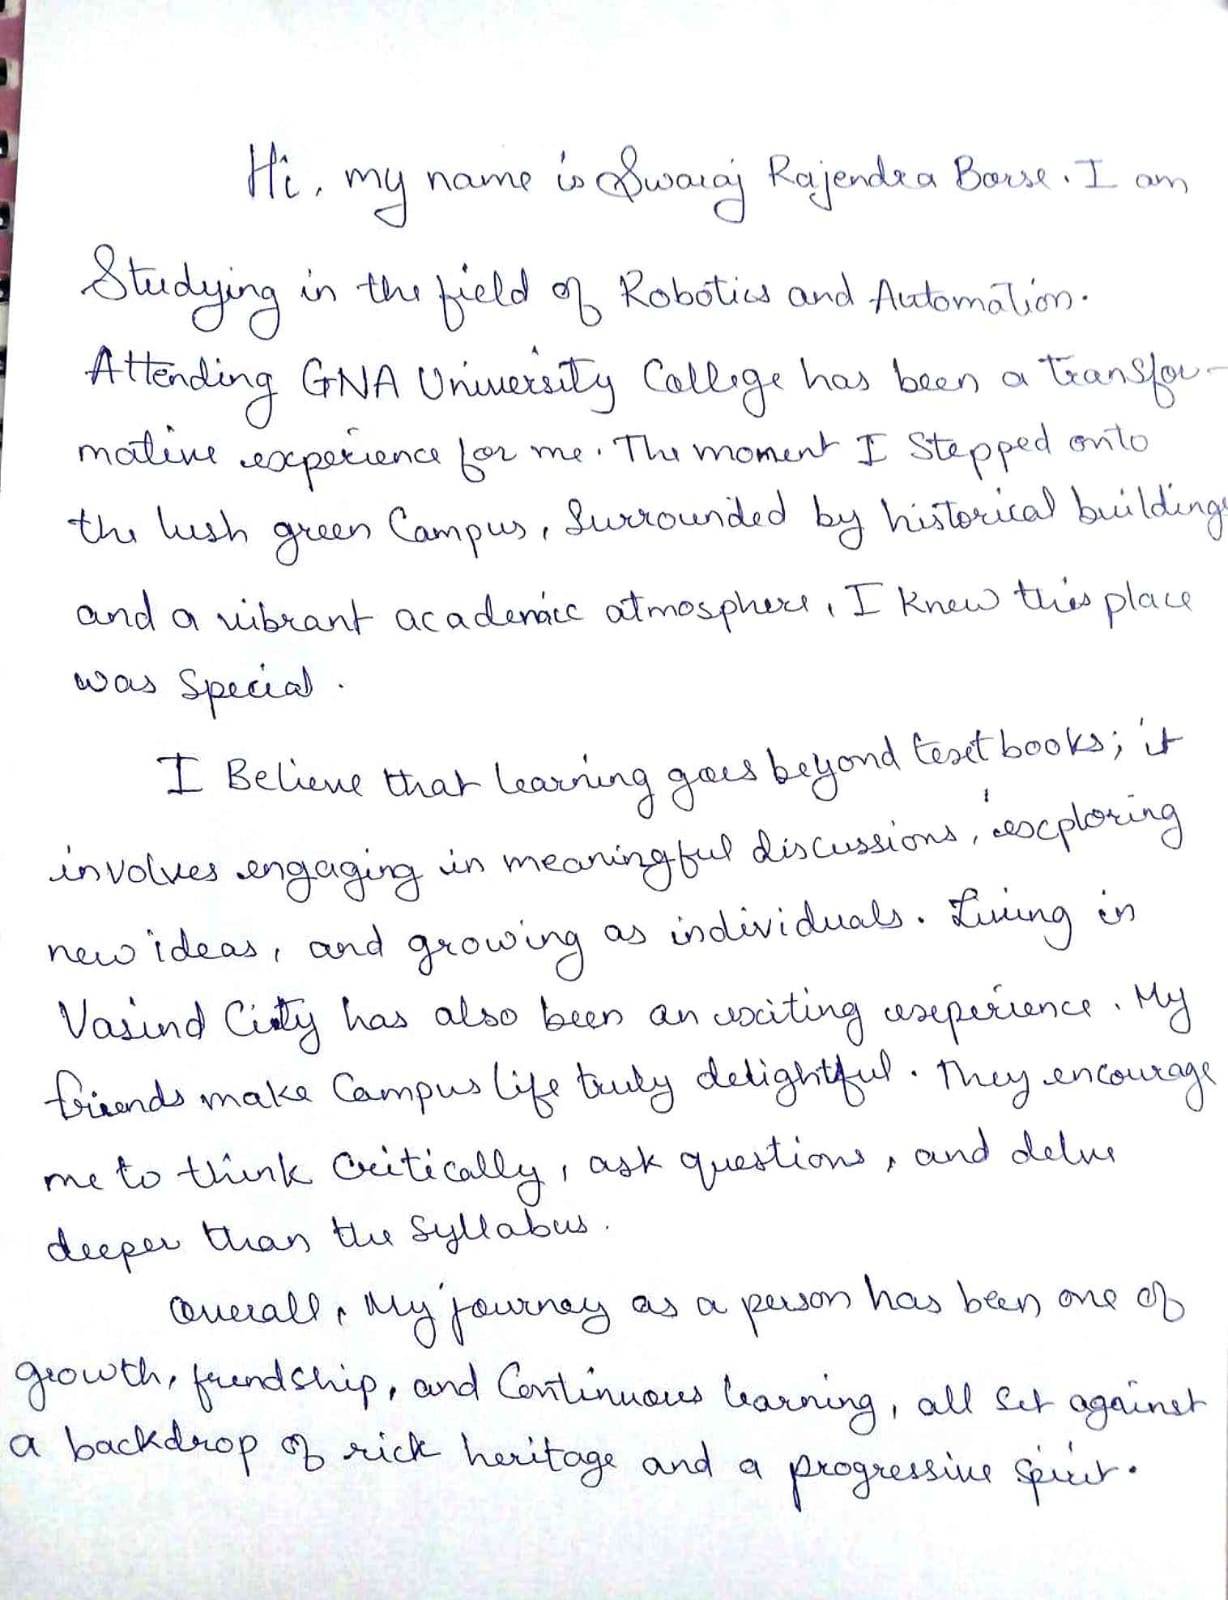 Hi, my name is Swaraj Rajendra Borse. I am
Studying in the field of Robotics and Automation.
Attending GNA University College has been a transfor-
mative experience for me. The moment I Stepped onto
the lush green Campus, Surrounded by historical buildings
and a vibrant academic atmosphere, I knew this place
was Special.
I Believe that learning goes beyond textbooks; it
involves engaging in meaningful discussions, exploring
new ideas, and growing as individuals. Living in
Vasind City has also been an exciting experience. My
friends make Campus life truly delightful. They encourage
me to think Critically, ask questions, and delve
deeper than the Syllabus.
Overall, My journey as a person has been one of
growth, friendship, and Continuous learning, all Set against
a backdrop of rick heritage and a progressive Spirit.